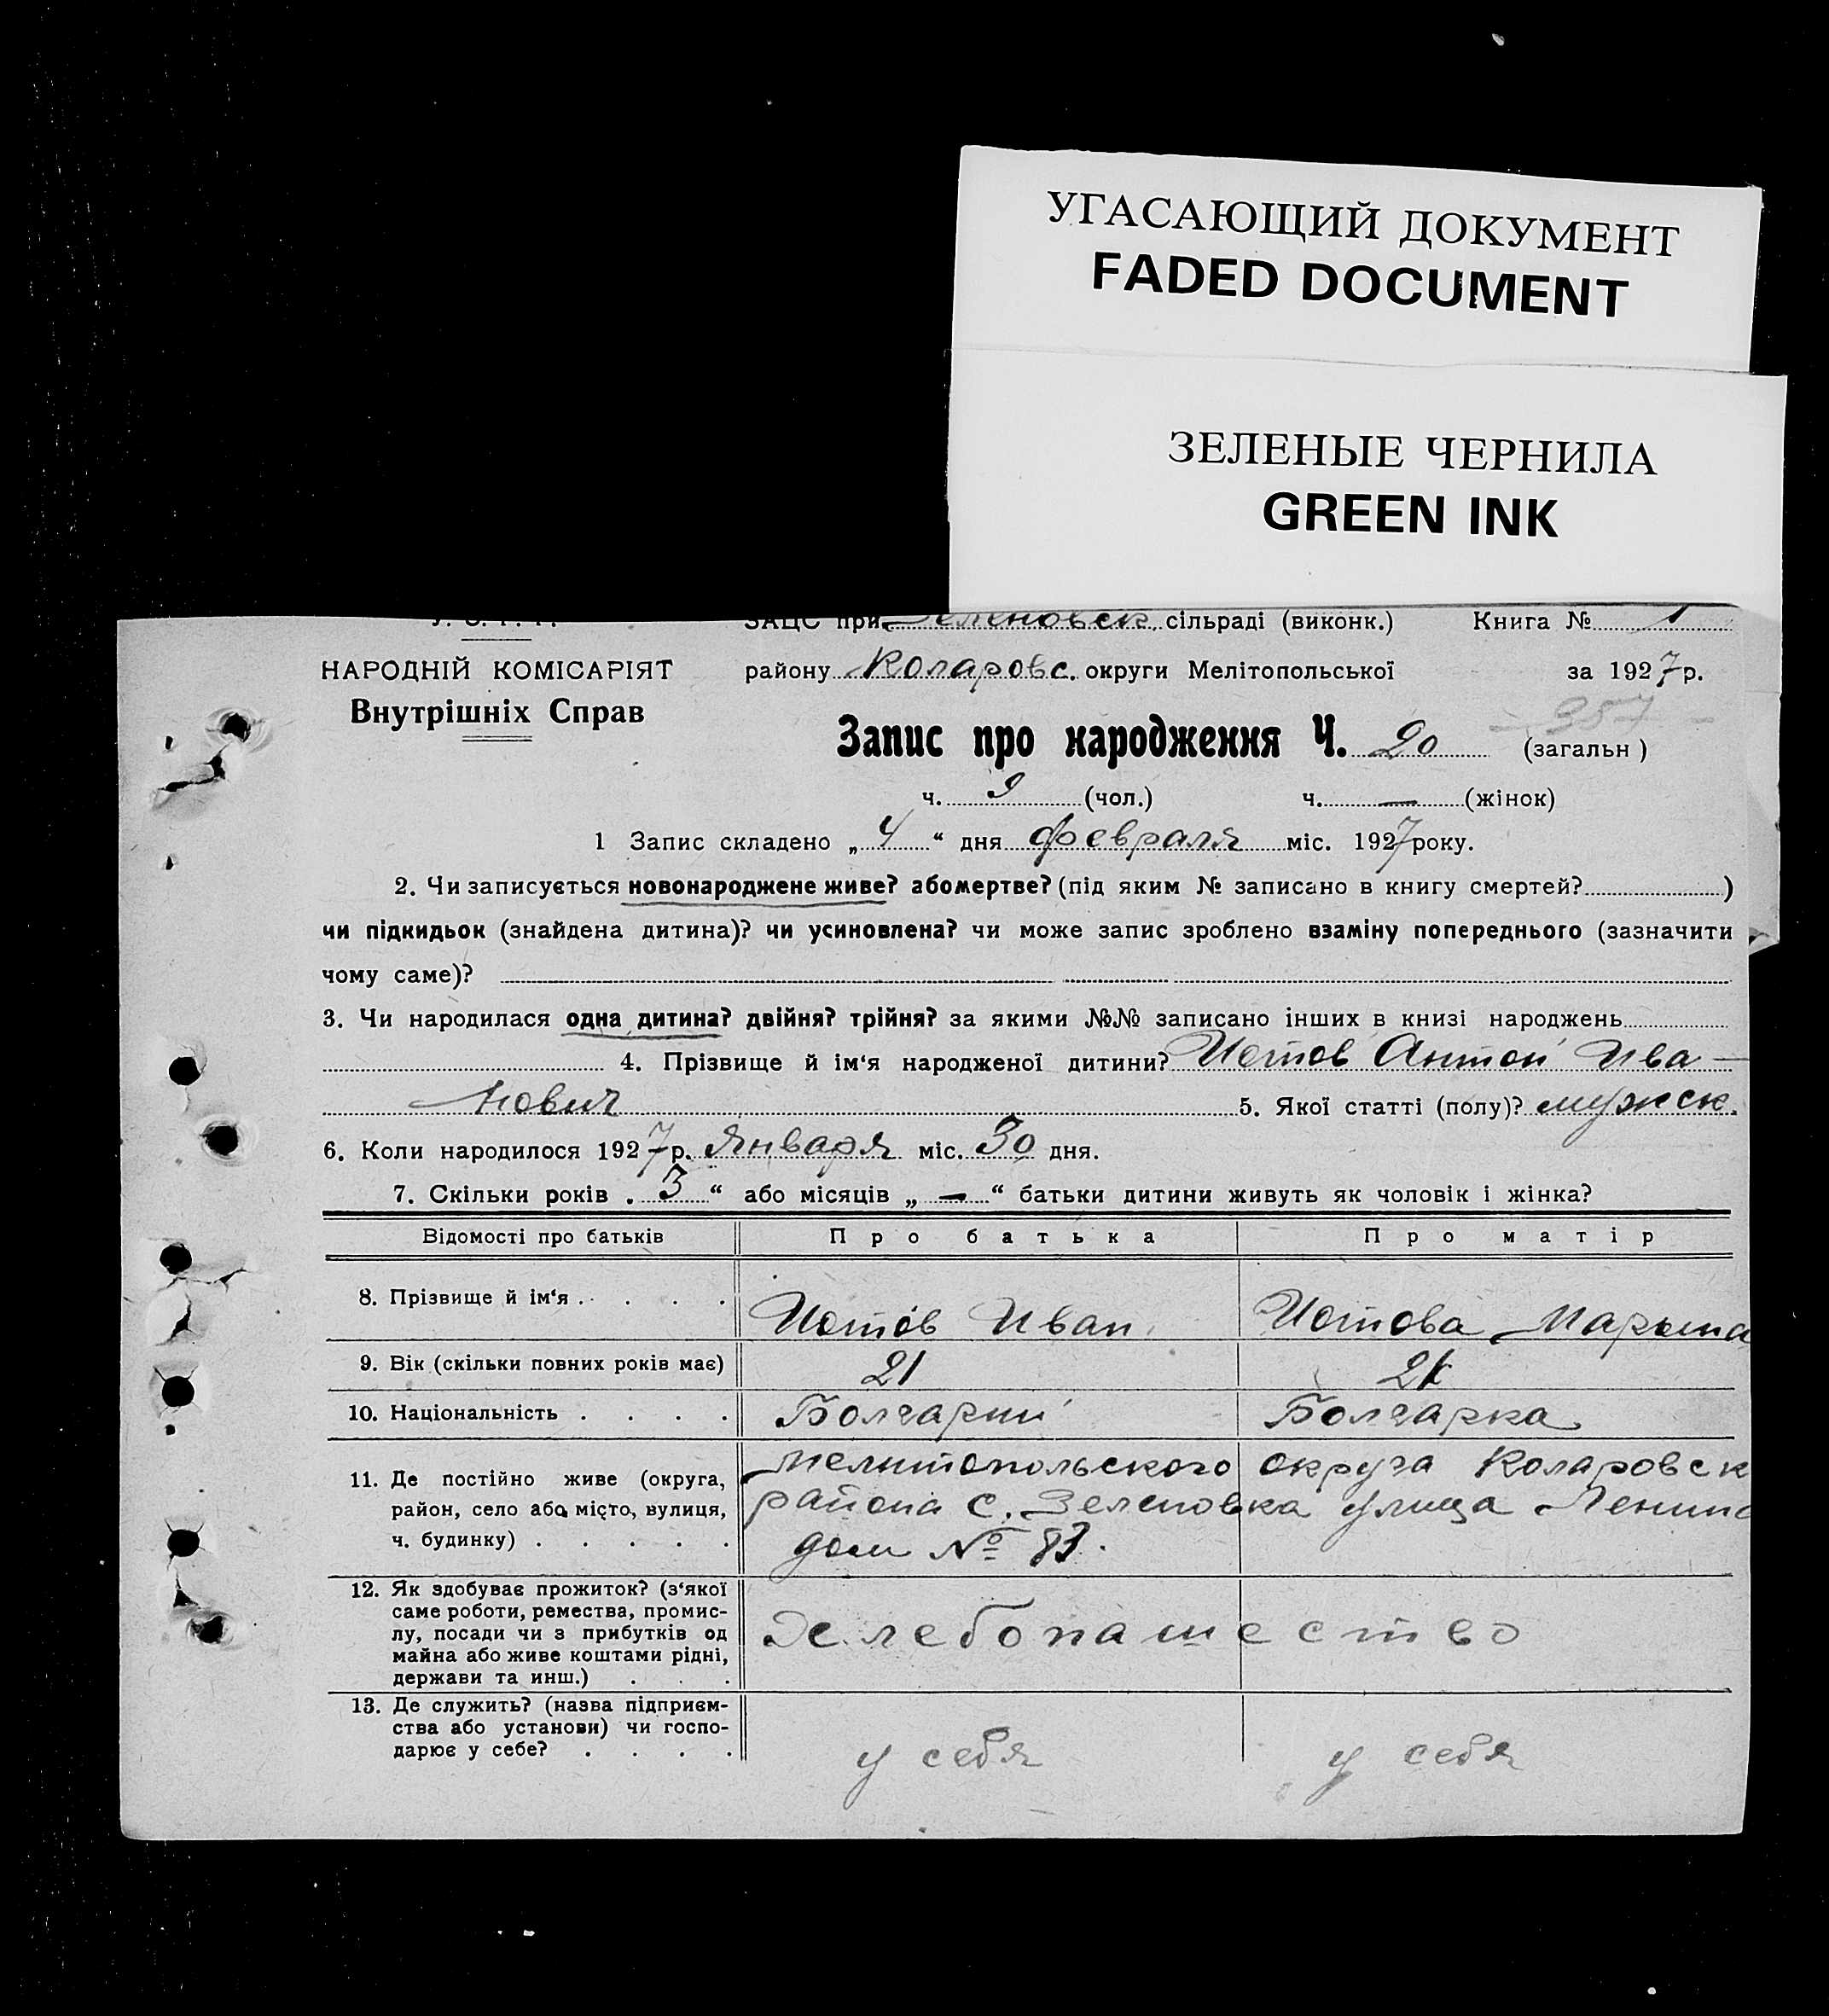 УГАСАЮЩИЙ ДОКУМЕНТ
FADED DOCUMENT
ЗЕЛЕНЫЕ ЧЕРНИЛА
GREEN INK
У. С. Р. Р. ЗАЦС при Зеленовск сільраді (виконк.) Книга № 1
НАРОДНІЙ КОМІСАРІЯТ району Коларовс. округи Мелітопольської за 1927 р.
Внутрішніх Справ
357
Запис про народження Ч. 20 (загальн )
ч. 9 (чол.) ч. — (жінок)
1 Запис складено „ 4 “ дня февраля міс. 1927 року.
2. Чи записується новонароджене живе? або мертве? (під яким № записано в книгу смертей? )
чи підкидьок (знайдена дитина)? чи усиновлена? чи може запис зроблено взаміну попереднього (зазначити
чому саме)?
3. Чи народилася одна дитина? двійня? трійня? за якими №№ записано інших в книзі народжень
4. Прізвище й ім‘я народженої дитини? Иотов Антон Ива-
нович 5. Якої статті (полу)? мужск.
6. Коли народилося 1927 р. Января міс. 30 дня.
7. Скільки років „ 3 “ або місяців „ — “ батьки дитини живуть як чоловік і жінка?
Відомості про батьків Про батька Про матір
8. Прізвище й ім‘я . . . . . Иотов Иван Иотова Марына
9. Вік (скільки повних років має) 21 21
10. Національність . . . . Болгарин Болгарка
11. Де постійно живе (округа, Мелитопольского округа Коларовск
район, село або місто, вулиця, района с. Зеленовка улица Ленина
ч. будинку) . . . . . дом № 83.
12. Як здобуває прожиток? (з‘якої
саме роботи, ремества, промис-
лу, посади чи з прибутків од Хлебопашество
майна або живе коштами рідні,
держави та инш.) . . .
13. Де служить? (назва підприєм-
ства або установи) чи госпо-
дарює у себе? . . . . у себя у себя